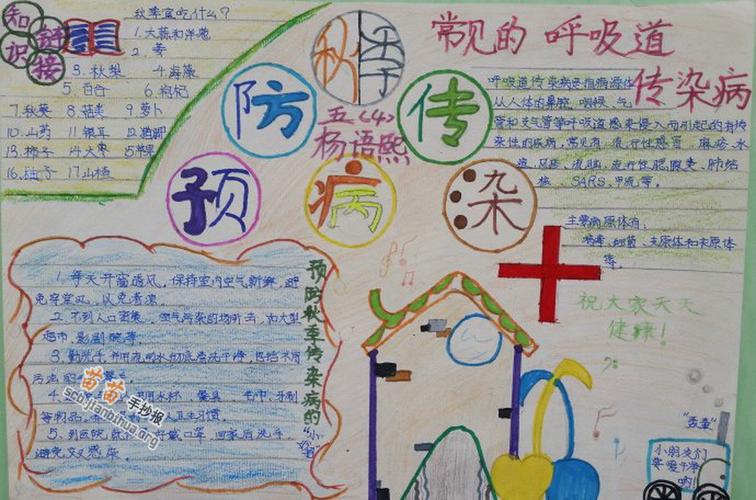 知识链接
秋季宜吃什么？
1.大蒜和洋葱
3.秋梨 4.海藻
5.百合 6.枸杞
8.菇类 9.萝卜
10.山药 11.银耳
13.柿子 14.大枣 15.苹果
16.柚子 17.山楂
秋季
预防传染病
五(4)
杨语熙
常见的呼吸道
传染病
呼吸道传染病是指病源体
从人体的鼻腔、咽喉、气
管和支气管等呼吸道感染侵入而引起的有传
染性的疾病,常见有:流行性感冒、麻疹、水
痘、风疹、流脑、流行性腮腺炎、肺结
核、SARS、甲流等。
主要病原体有:
病毒、细菌、支原体和衣原体
等
祝大家天天
健康!
预防秋季传染病的
1.每天开窗通风,保持室内空气新鲜,避
2.不到人口密集、空气污染的场所去,如大型
超市、影剧院等。
3.勤洗手,并用流动水彻底清洗干净,包括不用
4.
水杯、餐具、毛巾、牙刷
等制品
卫生习惯。
5.到医院就
戴口罩,回家后洗手,
避免交叉感染。
小朋友们
要爱干净
哟!
苗苗手抄报
scb.jianbihua.org